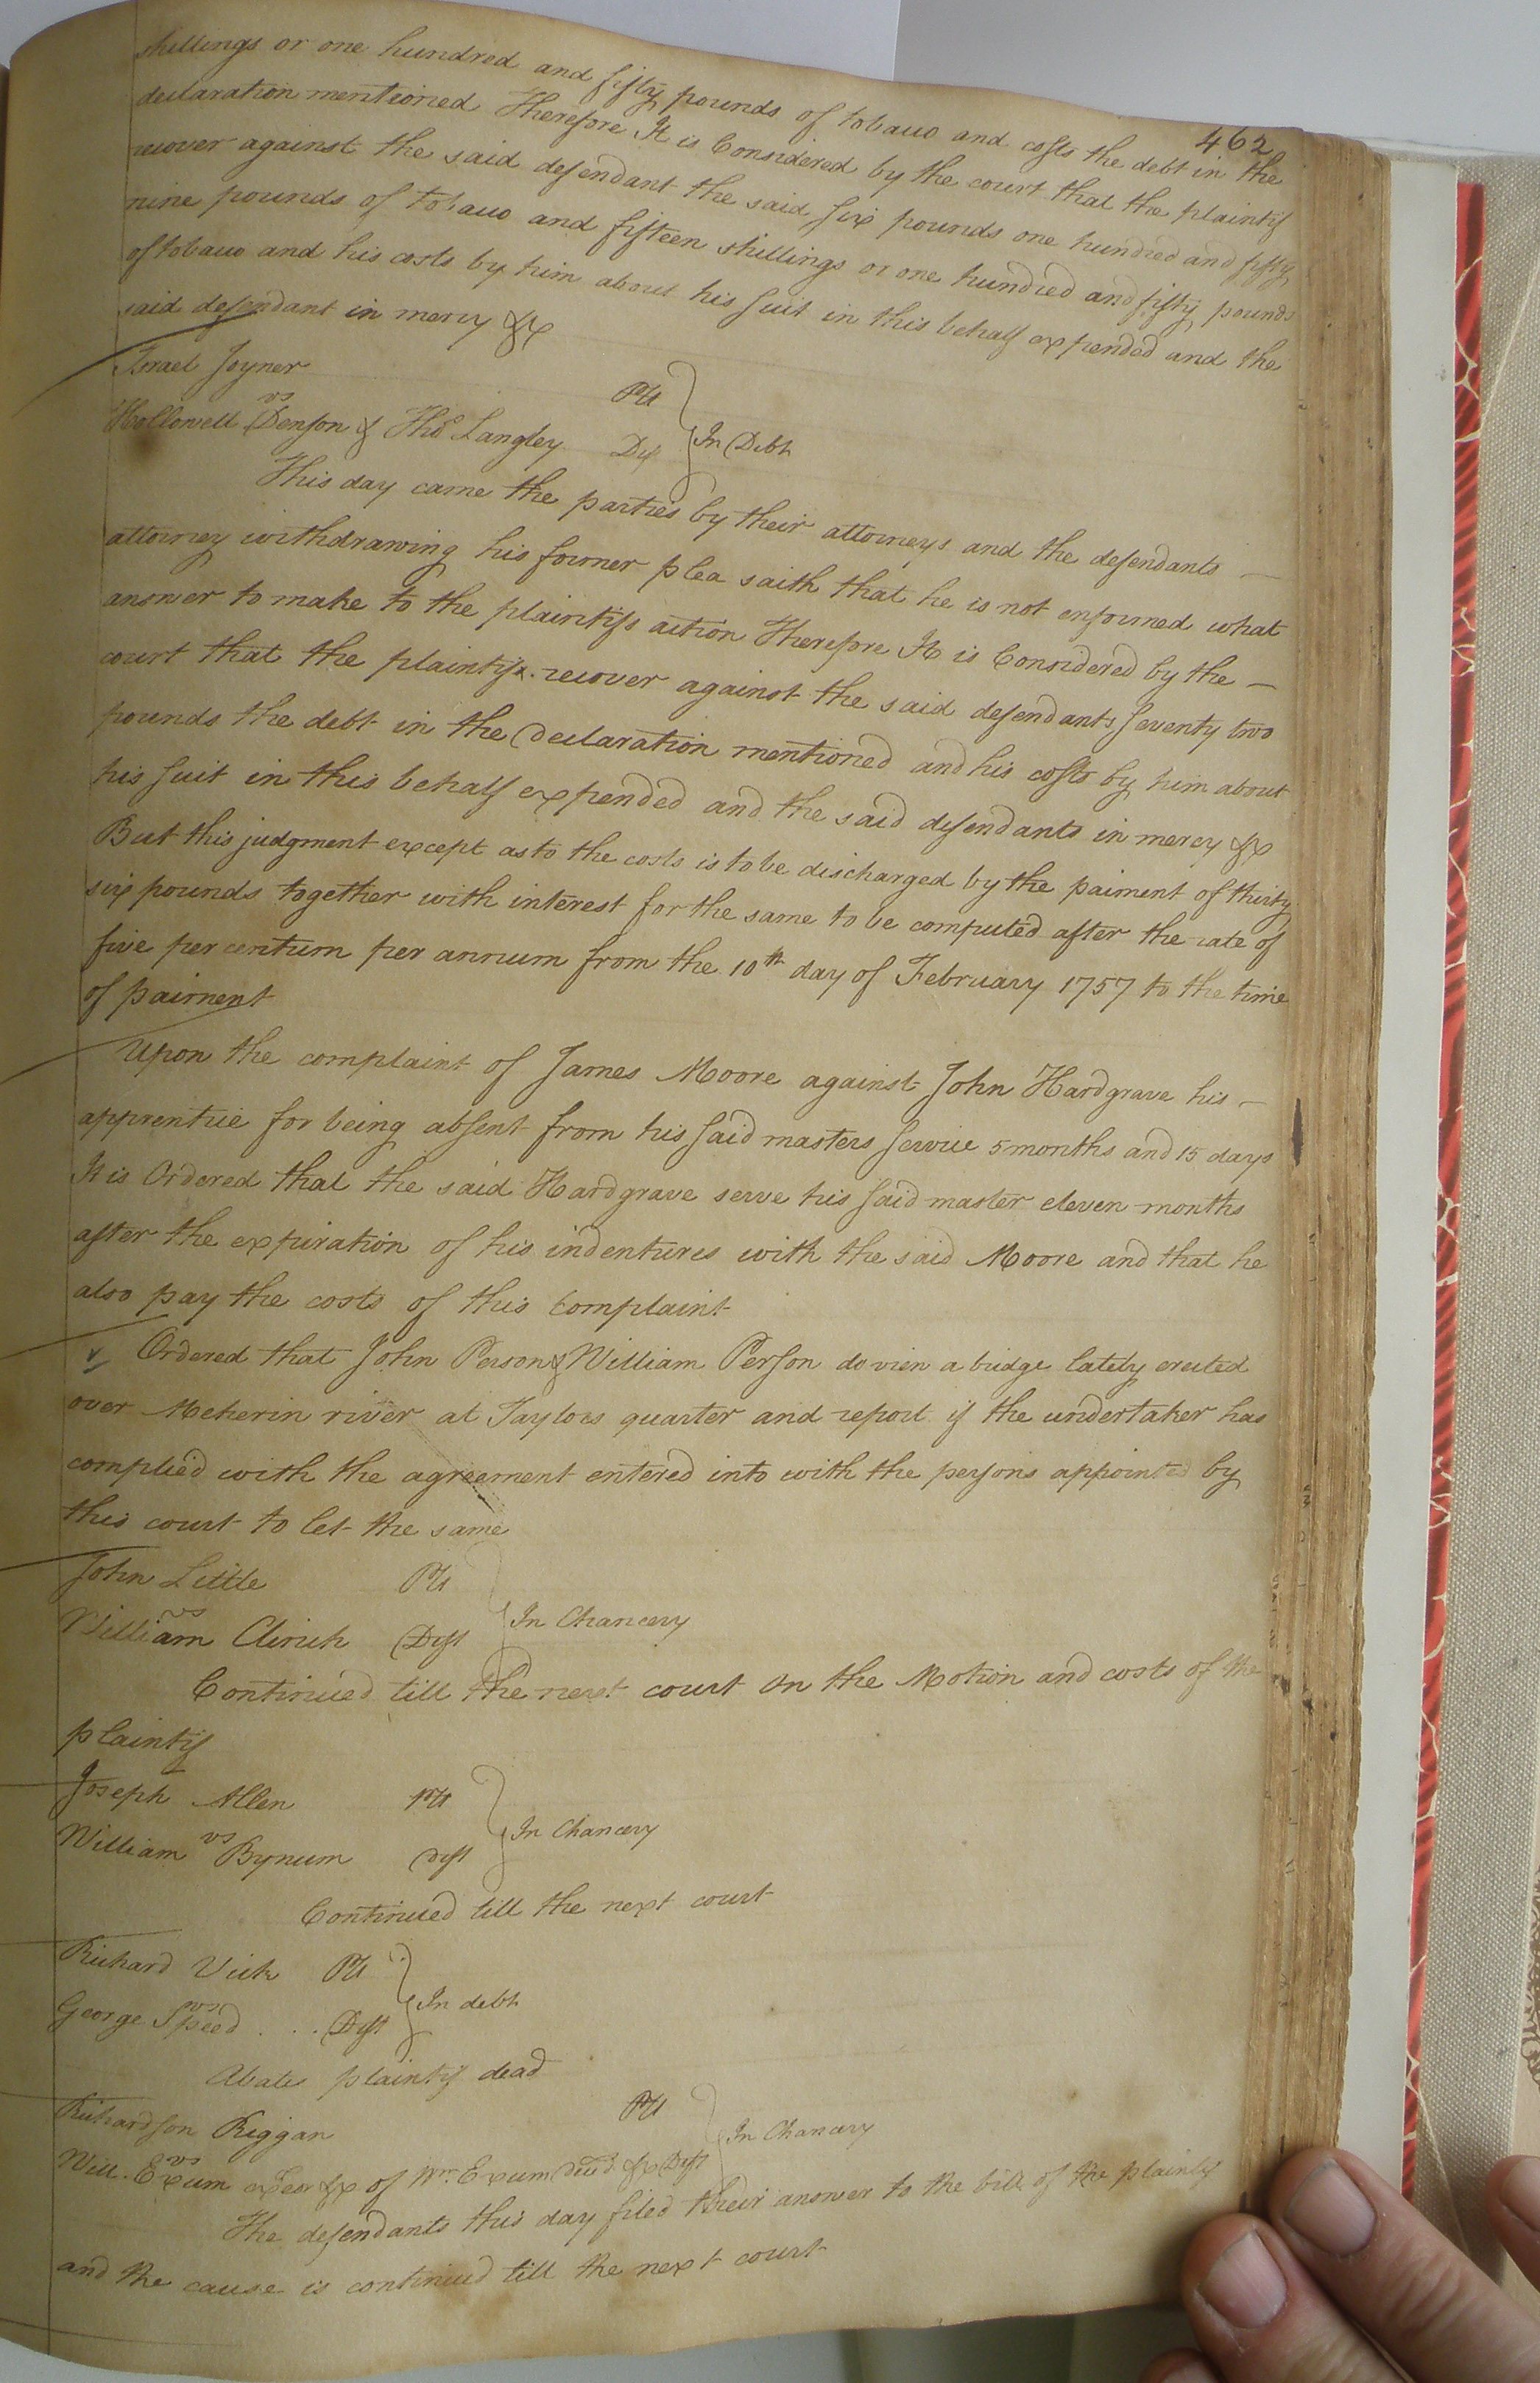 462
shillings or one hundred and fifty pounds of tobacco and costs the debt in the
declaration mentioned Therefore It is Considered by the court that the plaintif
recover against the said defendant the said six pounds one hundred and fifty
nine pounds of tobacco and fifteen shillings or one hundred and fifty pounds
of tobacco and his costs by him about his suit in this behalf expended and the
said defendant in mercy &c
Israel Joyner Plt
vs In Debt
Hollowell Denson & Thos Langley Def
This day came the parties by their attorneys and the defendants —
attorney withdrawing his former plea saith that he is not enformed what
answer to make to the plaintifs action Therefore It is Considered by the —
court that the plaintif recover against the said defendants seventy two
pounds the debt in the declaration mentioned and his costs by him about
his suit in this behalf expended and the said defendants in mercy &c
But this judgment except as to the costs is to be discharged by the paiment of thirty
six pounds together with interest for the same to be computed after the rate of
five per centum per annum from the 10th day of February 1757 to the time
of paiment
Upon the complaint of James Moore against John Hardgrave his —
apprentice for being absent from his said masters service 5 months and 15 days
It is Ordered that the said Hardgrave serve his said master eleven months
after the expiration of his indentures with the said Moore and that he
also pay the costs of this complaint
Ordered that John Person & William Person do view a bridge lately erected
over Meherin river at Taylors quarter and report if the undertaker has
complied with the agreement entered into with the persons appointed by
this court to let the same
John Little Plt
vs In Chancery
William Clinch Deft
Continued till the next court on the Motion and costs of the
plaintif
Joseph Allen Plt
vs In Chancery
William Bynum Deft
Continued till the next court
Richard Vick Plt
vs In debt
George Speed . . . Deft
Abates plaintif dead
Richardson Riggan Plt
vs In Chancery
Will. Exum exeor &c of Wm Exum decd. &c Deft
The defendants this day filed their answer to the bill of the plaintif
and the cause is continued till the next court